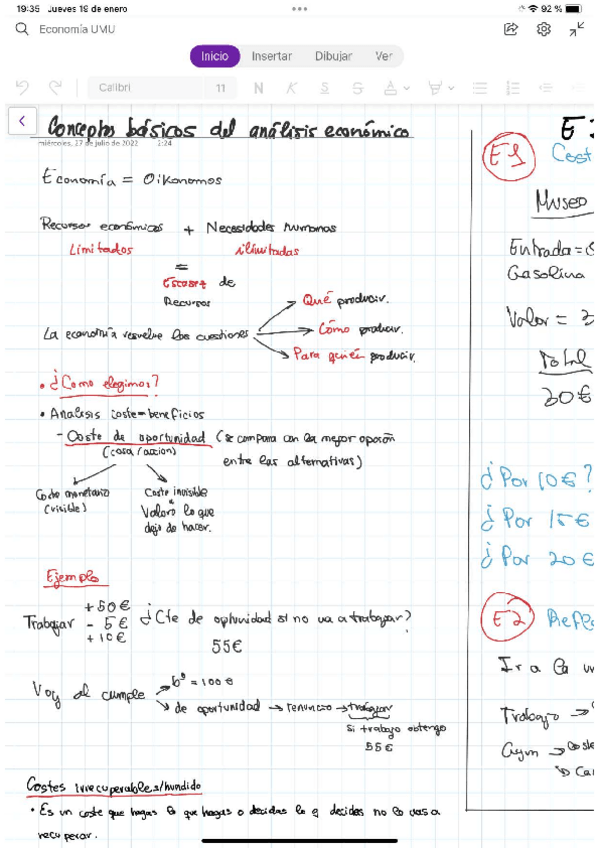 19:35 Jueves 19 de enero
92 %
Economía UMU
Inicio Insertar Dibujar Ver
Calibri 11 N K S A
Conceptos básicos del análisis económico
miércoles, 27 de julio de 2022 2:24
Economía = Oikonomos
Recursos económicos + Necesidades humanas
Limitados ilimitadas
=
Escasez de
Recursos
Qué producir.
La economía resuelve las cuestiones Cómo producir.
Para quién producir.
• ¿Como elegimos?
• Analisis coste-beneficios
- Coste de oportunidad (se compara con la mejor opción
(cosa/acción) entre las alternativas)
Coste monetario
(visible)
Coste invisible
Valoro lo que
dejo de hacer.
Ejemplo
+ 50€
Trabajar - 5€ ¿Cte de optunidad si no va a trabajar?
+ 10€
55€
Voy al cumple bº = 100€
de oportunidad → renuncio → trabajar
Si trabajo obtengo
55€
Costes irrecuperables/hundido
• Es un coste que hagas lo que hagas o decidas lo q decidas no lo vas a
recuperar.
E1 Cost
Museo
Entrada =
Gasolina
Valor =
Total
30€
¿Por 10€?
¿Por 15€
¿Por 20€
E2 Refle
Ir a la un
Trabajo →
Gym → Coste